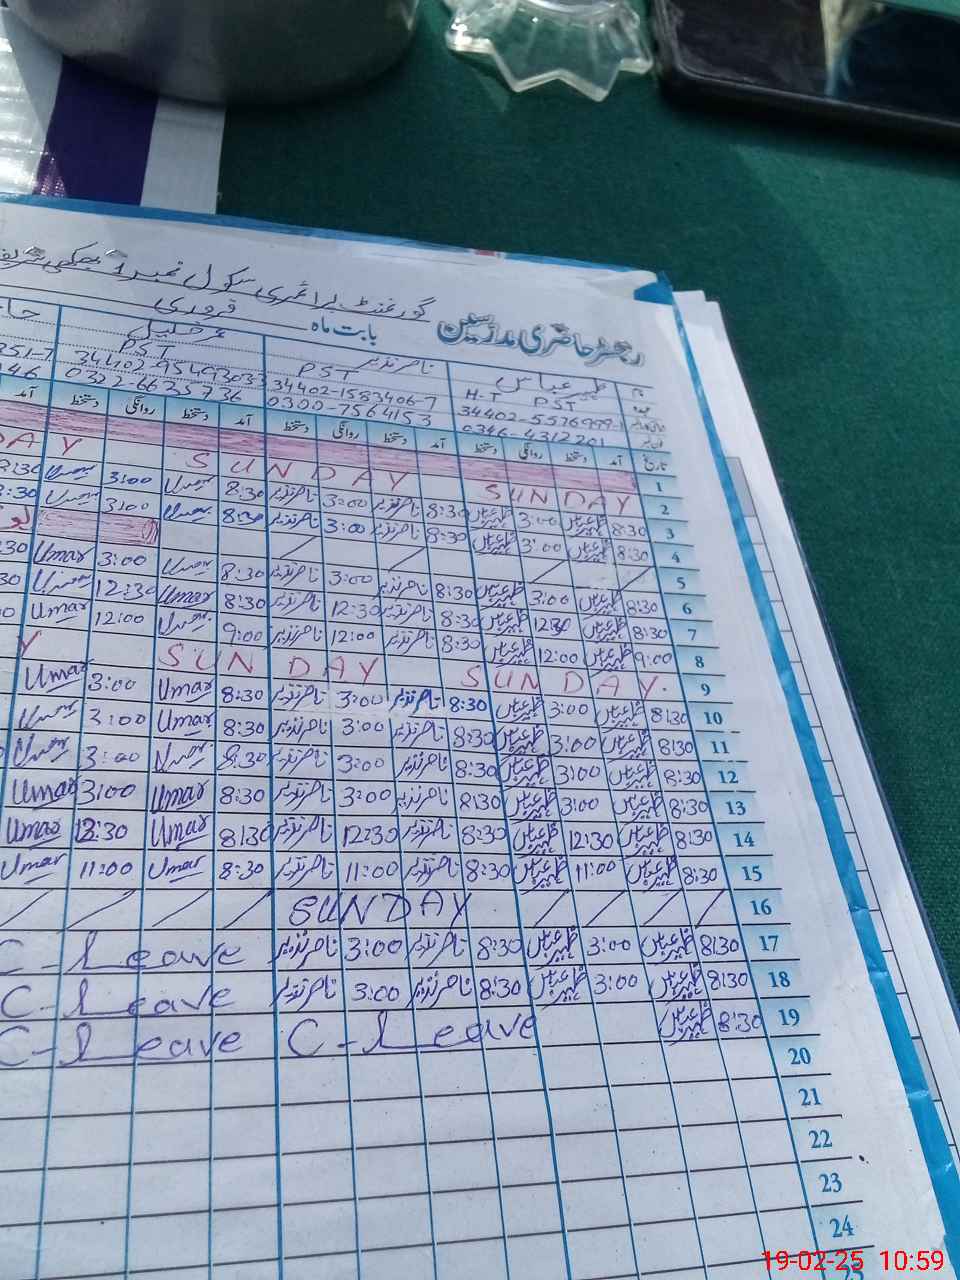 گورنمنٹ پرائمری سکول نمبر 1
رجسٹر حاضری مدرسین بابت ماہ فروری
ظہیر عباس ناصر نذیر عمر خلیل
H-T PST PST PST
34402-5576999-1 34402-1583406-7 34402-9540303
0346-4312201 0300-7564153 0322-6635736
تاریخ آمد دستخط روانگی دستخط آمد دستخط روانگی دستخط آمد دستخط روانگی دستخط آمد
1
2 SUNDAY SUNDAY
3 8:30 ظہیر عباس 3:00 ظہیر عباس 8:30 ناصر نذیر 3:00 ناصر نذیر 8:30 3:00
4 8:30 ظہیر عباس 3:00 ظہیر عباس 8:30 ناصر نذیر 3:00 ناصر نذیر 8:30 3:00
5
6 8:30 ظہیر عباس 3:00 ظہیر عباس 8:30 ناصر نذیر 3:00 ناصر نذیر 8:30 3:00 Umar
7 8:30 ظہیر عباس 12:30 ظہیر عباس 8:30 ناصر نذیر 12:30 ناصر نذیر 8:30 Umar 12:30
8 9:00 ظہیر عباس 12:00 ظہیر عباس 8:30 ناصر نذیر 12:00 ناصر نذیر 9:00 12:00 Umar
9 SUNDAY SUNDAY
10 8:30 ظہیر عباس 3:00 ظہیر عباس 8:30 ناصر نذیر 3:00 ناصر نذیر 8:30 Umar 3:00 Umar
11 8:30 ظہیر عباس 3:00 ظہیر عباس 8:30 ناصر نذیر 3:00 ناصر نذیر 8:30 Umar 3:00
12 8:30 ظہیر عباس 3:00 ظہیر عباس 8:30 ناصر نذیر 3:00 ناصر نذیر 8:30 3:00
13 8:30 ظہیر عباس 3:00 ظہیر عباس 8:30 ناصر نذیر 3:00 ناصر نذیر 8:30 Umar 3:00 Umar
14 8:30 ظہیر عباس 12:30 ظہیر عباس 8:30 ناصر نذیر 12:30 ناصر نذیر 8:30 Umar 12:30 Umar
15 8:30 ظہیر عباس 11:00 ظہیر عباس 8:30 ناصر نذیر 11:00 ناصر نذیر 8:30 Umar 11:00 Umar
16 SUNDAY
17 8:30 ظہیر عباس 3:00 ظہیر عباس 8:30 ناصر نذیر 3:00 ناصر نذیر C-Leave
18 8:30 ظہیر عباس 3:00 ظہیر عباس 8:30 ناصر نذیر 3:00 ناصر نذیر C-Leave
19 8:30 ظہیر عباس C-Leave C-Leave
20
21
22
23
24
25
19-02-25 10:59